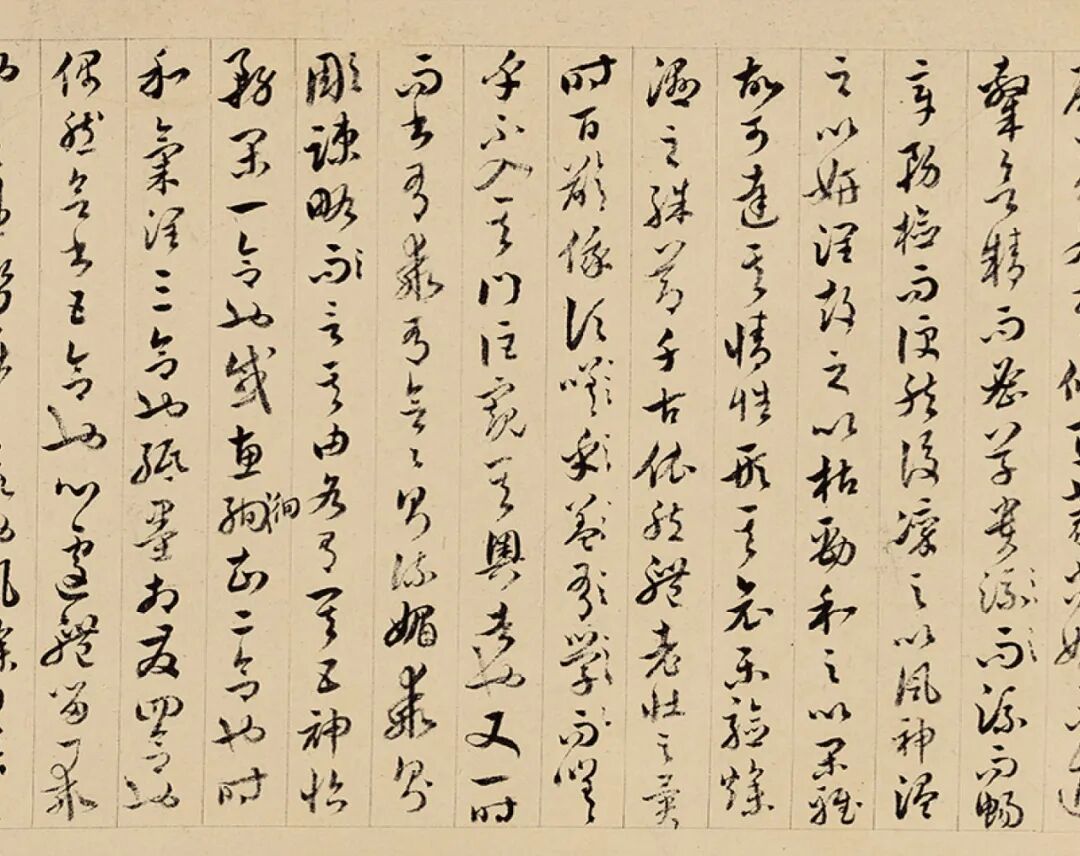 隸欲精而密草貴流而流而暢
章務檢而便然後凜之以風神溫
之以妍潤鼓之以枯勁和之以閑雅
故可達其情性形其哀樂驗燥
濕之殊節千古依然體老壯之異
時百齡俄頃嗟而嗟
乎不入其門詎窺其奧者也又一時
而書有乖有合合則流媚乖則
彫疎略而言其由各有其五神怡
務閑一合也感惠徇徇知二合也時
和氣潤三合也紙墨相發四合也
偶然欲書五合也心遽體留一乖